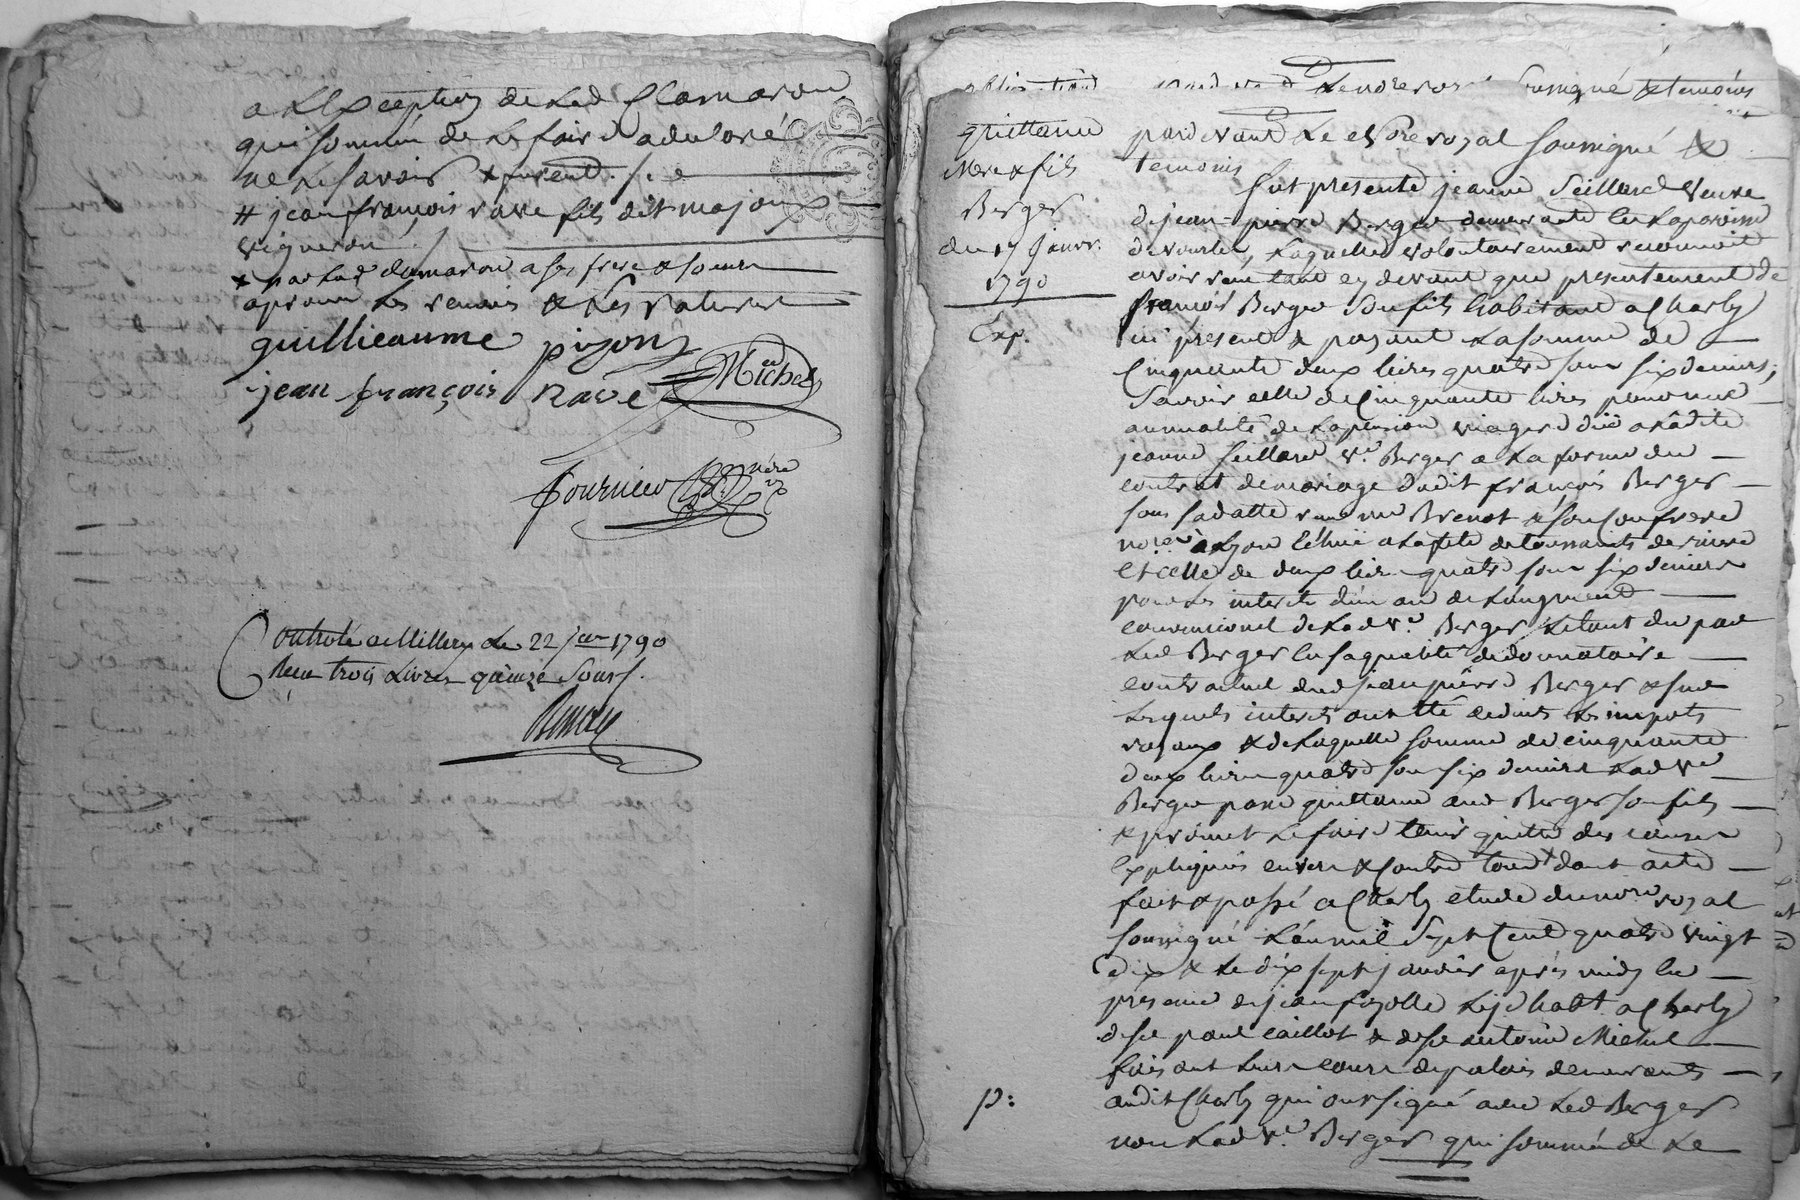 a l'exception de led Clamaron
qui sommé de le faire a declaré
ne le savoir
# jean françois rave fils dit majour
vigneron
approuvé les renvois & les ratures
guillieaume pizon
jean françois Rave Michel
fournier
Controlé a Millery le 22 jer 1790
Reçu trois Livres quinze Sous
quittance
Mere & fils
Berger
du 17 janvr.
1790
Exp.
pardevant le no.re royal soussigné &
temoins
fut presente jeanne Seillard veuve
de jean-pierre Berger demeurante en la paroisse
de vourles, laquelle volontairement reconnoit
avoir reçu tant cy devant que presentement de
françois Berger son fils habitant a Charly
ici present & payant la somme de
Cinquante deux livres quatre sous six deniers;
Savoir celle de Cinquante livres pour une
annualité de la pension viagere düe a ladite
jeanne Seillard ve. Berger a la forme du
contrat de mariage dudit françois Berger
sous sa datte reçu me Brenot & son confrere
nores a Lyon échue a la fete de toussaints derniere
et celle de deux livres quatre sous six deniers
pour les interets d'un an de l'augment
conventionel de lad ve. Berger & etant du par
led Berger en sa qualité de donnataire
contractuel dud jean pierre Berger & sur
lesquels interets ont été deduits les impots
royaux & de laquelle somme de cinquante
deux livres quatre sous six deniers lad ve
Berger passe quittance aud Berger son fils
& promet le faire tenir quitte des causes
expliquées envers & contre tous dont acte
fait & passé a Charly etude du nore royal
soussigné L'an mil Sept Cent quatre vingt
dix & le dix sept janvier après midy en
presence de jean fayolle habt. a Charly
de sr paul caillot & de sr antoine Michel
faisant leurs cours de palais demeurants
audit Charly qui ont signé avec led Berger
non lad ve. Berger qui sommée de le
p: